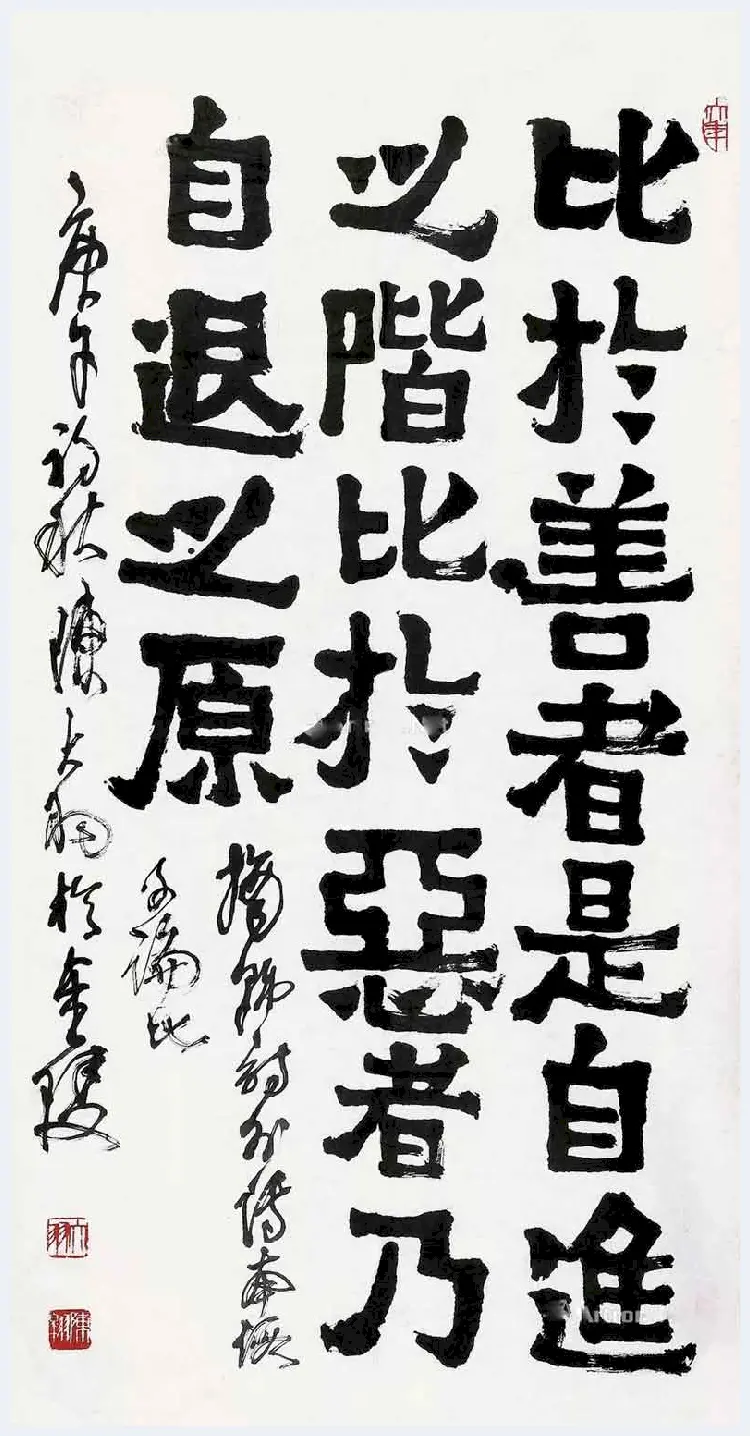 比於善者是自進
之階比於惡者乃
自退之原
摘韓詩外傳南假
子論比
庚午初秋陳大羽於金陵
大羽